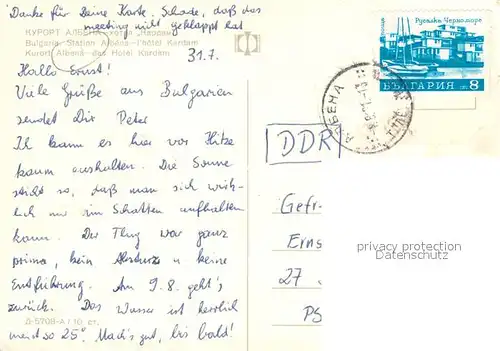 Danke für Deine Karte. Schade, daß das
meeting nicht geklappt hat
КУРОРТ АЛБЕНА - хотел „Кардам“
Bulgaria Station Albena - l'hôtel Kardam
Kurort Albena - das Hotel Kardam
31.7.
Hallo Ernst!
Viele Grüße aus Bulgarien
sendet Dir Peter
Ich kann es hier vor Hitze
kaum aushalten. Die Sonne
sticht so, daß man sich wirk-
lich nur im Schatten aufhalten
kann. Der Flug war ganz
prima, kein Absturz u. keine
Entführung. Am 9.8. geht's
zurück. Das Wasser ist herrlich
und so 25°. Mach's gut, bis bald!
Д-5708-А / 10 ст.
Русалка Черноморие
БЪЛГАРИЯ 8
АЛБЕНА
DDR
Gefr.
Erns
27
PS
privacy protection
Datenschutz